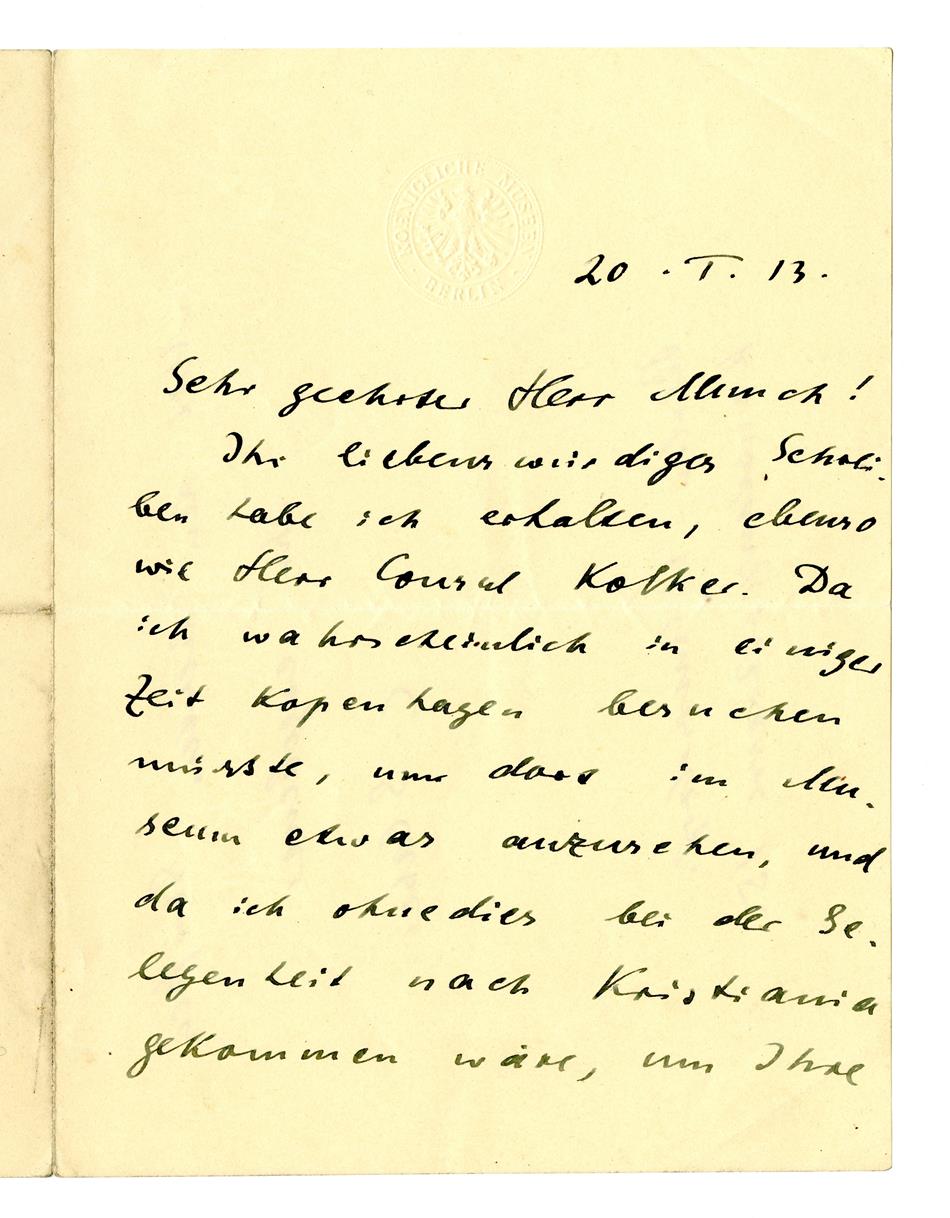 KOENIGLICHE MUSEEN
· BERLIN ·
20 . I. 13.
Sehr geehrter Herr Munch!
Ihr liebenswürdiges Schrei-
ben habe ich erhalten, ebenso
wie Herr Consul Kolker. Da
ich wahrscheinlich in einiger
Zeit Kopenhagen besuchen
müsste, um dort im Mu-
seum etwas anzusehen, und
da ich ohnedies bei der Ge-
legenheit nach Kristiania
gekommen wäre, um Ihre